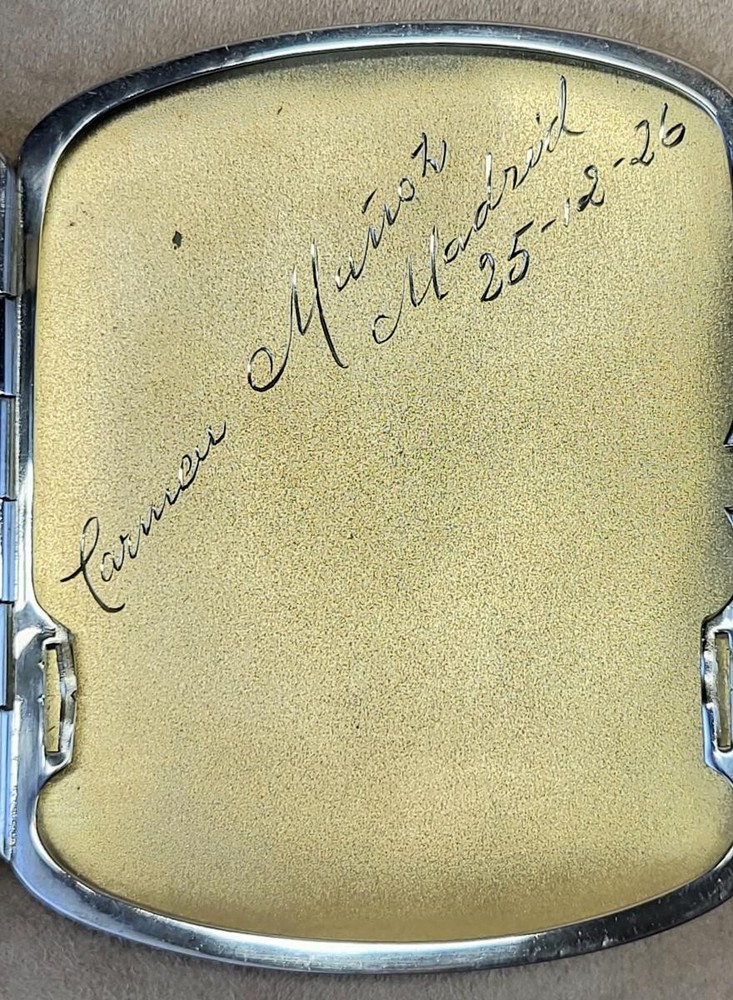 Carmen Muñoz
Madrid
25-12-26